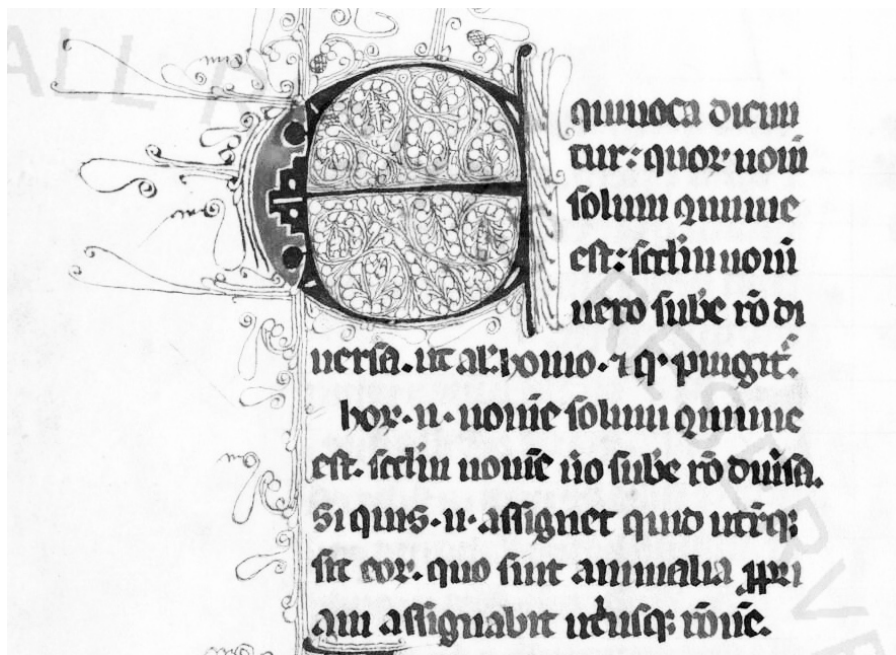 Equiuoca dicun
tur: quoꝝ nom̄
solum ꝯmune
est: scdm nom̄
uero sub̄e rō di
uersa. ut aīal. homo. ⁊ q̄. pingit᷑.
hoꝝ. n. nom̄e solum ꝯmune
est. scdm nom̄e ūo sub̄e rō diu̾sa.
Si quis. n. assignet quid ut̄ꝙ
sit eoꝝ. quo sint animalia ꝓpri
am assignabit ut̾usꝙ rōne.
ALL R
RESERVE